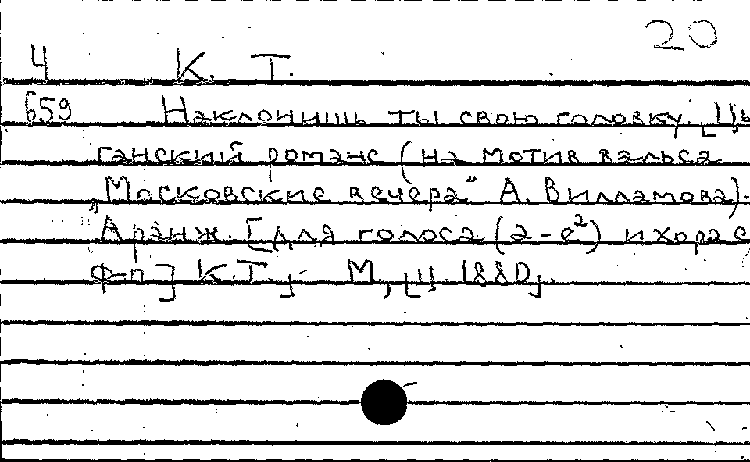 20
Ч К. Т.
659 Наклонишь ты свою головку. [Цы
ганский романс (на мотив вальса
„Московские вечера" А. Вилламова).
Аранж. [для голоса (a-e²) и хора с
ф-п] К.Т.] М, [ц. 1880].